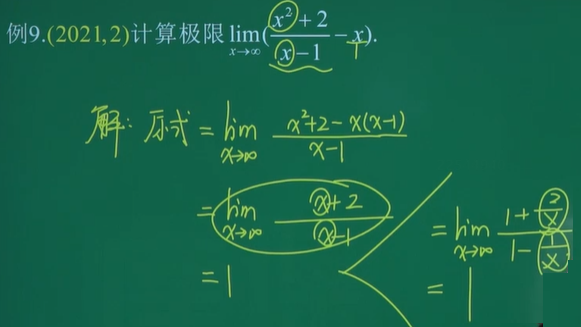 例9.(2021,2)计算极限 lim x→∞ (x²+2 / x-1 - x).
解: 原式 = lim x→∞ x²+2-x(x-1) / x-1
= lim x→∞ x+2 / x-1
= 1
= lim x→∞ 1+2/x / 1-1/x
= 1